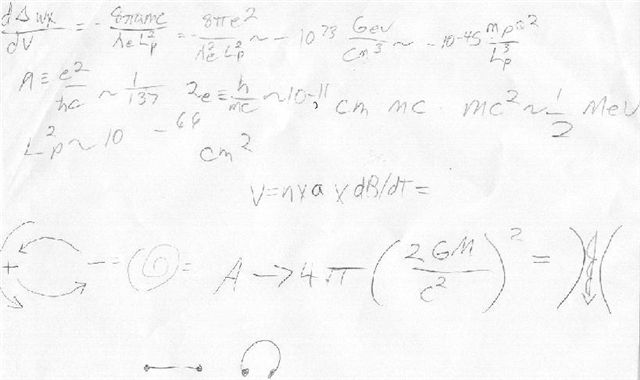 dΔwx/dV = -8παmc/λe L²p = -8πe²/λ²e L²p ~ -10⁷³ GeV/cm³ ~ -10⁻⁴⁵ mpc²/L³p
A ≡ e²/hc ~ 1/137 2e ≡ h/mc ~10-11, cm mc · mc² ~ 1/2 MeV
L²p ~ 10⁻⁶⁶ cm²
V=nxaxdB/dT=
+ - = = A → 4π (2GM/c²)² =